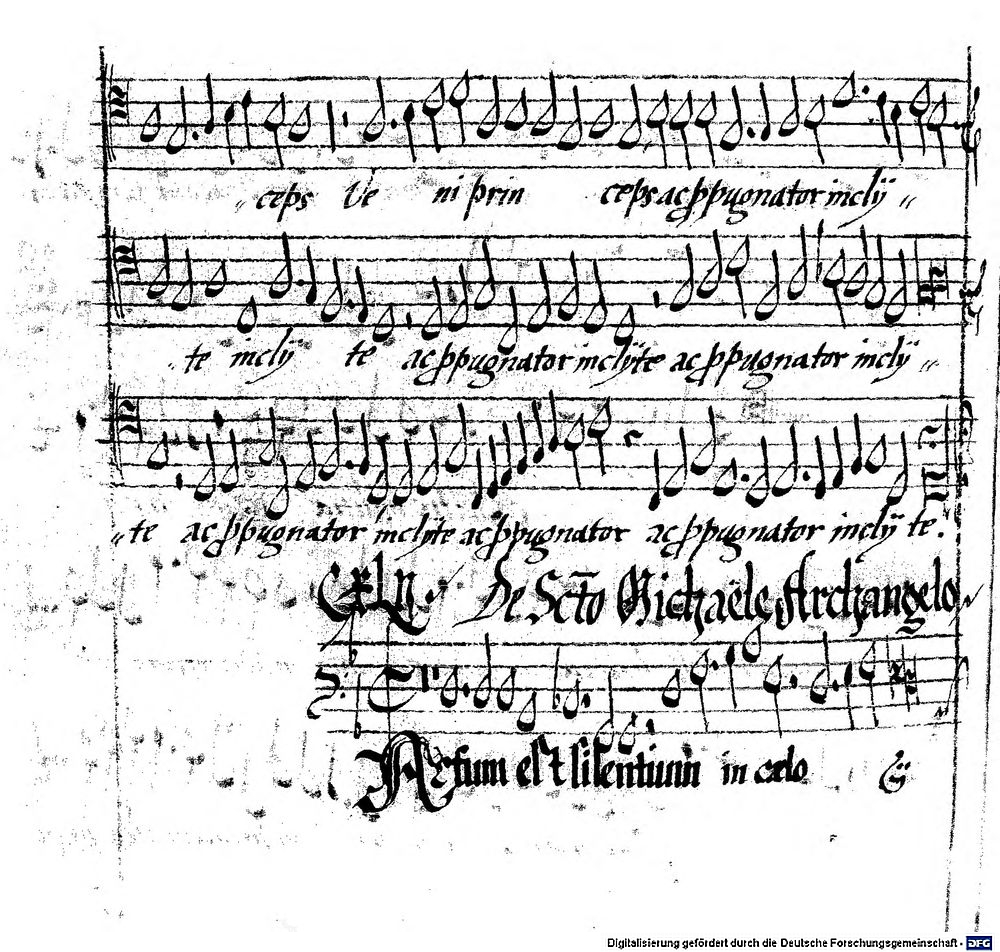 ceps Ve ni prin ceps ac ꝓpugnator inclÿ
te inclÿ te ac ꝓpugnator inclÿte ac ꝓpugnator inclÿ
te ac ꝓpugnator inclÿte ac ꝓpugnator ac ꝓpugnator inclÿ te.
De Sct̄o Michaële Archangelo
factum est silentium in cælo ij
Digitalisierung gefördert durch die Deutsche Forschungsgemeinschaft - DFG